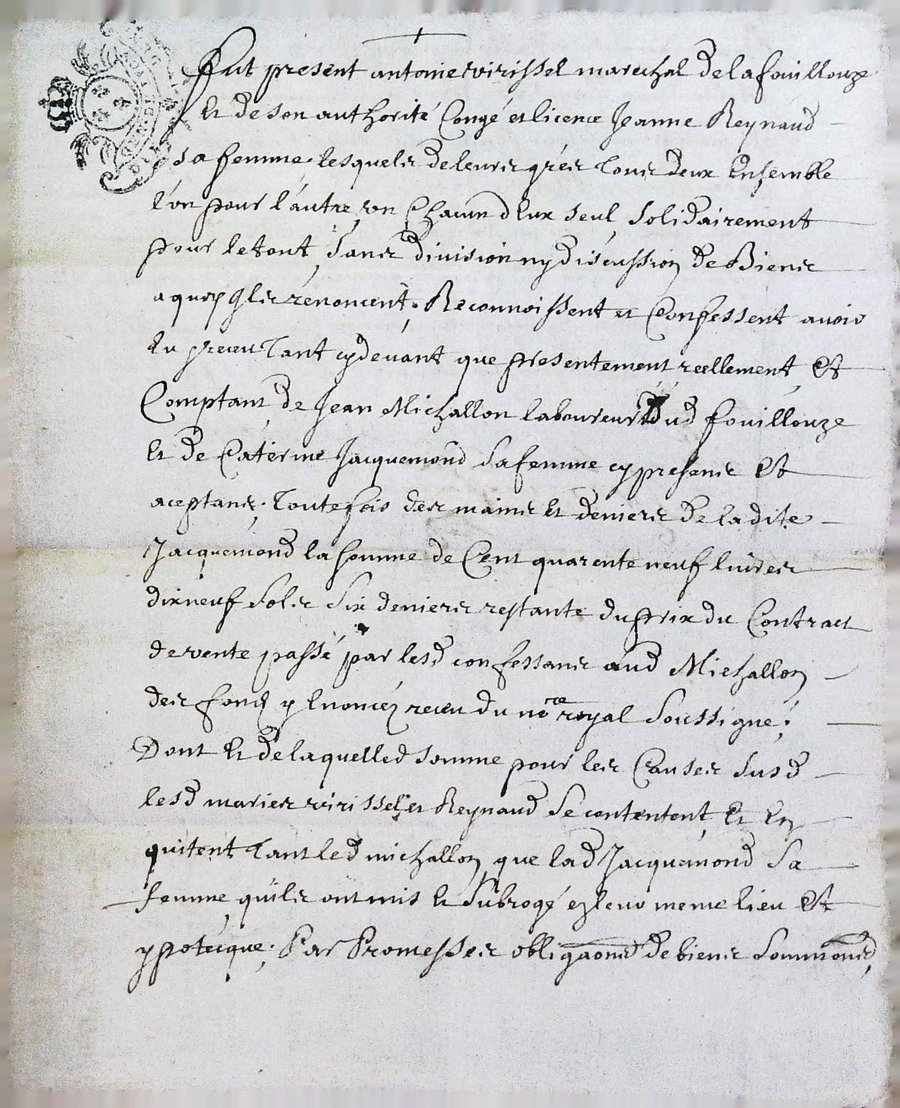 Fut present antoine virissel marechal de la fouillouze
Et de son authorité Congé et licence Jeanne Reynaud
sa femme, lesquels de leurs grés tous deux Ensemble
l'un pour l'autre, un Chacun d'Eux seul, solidairement
pour le tout, sans division ny discussion de Biens
a quoy Ils renoncent, Reconnoissent et Confessent avoir
Eu receu tant cy devant que presentement reellement, Et
Comptant, de Jean Michallon laboureur dud fouillouze
Et de Caterine Jacquemond sa femme cy presens Et
aceptans, toutefois des mains Et deniers de la dite
Jacquemond la somme de Cent quarente neuf livres
dix neuf sols six deniers restante du prix du Contract
de vente passé par lesd confessans aud Michallon
des fonds y Enoncez receu du no.re royal soussigné;
Dont Et de laquelled somme pour les Causes susd
lesd mariés virissel et Reynaud se contentent, Et En
quitent tant led michallon, que lad Jacquemond sa
femme quils ont mis Et subrogé en leur meme lieu Et
ypoteque; Par Promesses obligaons de biens soumions,